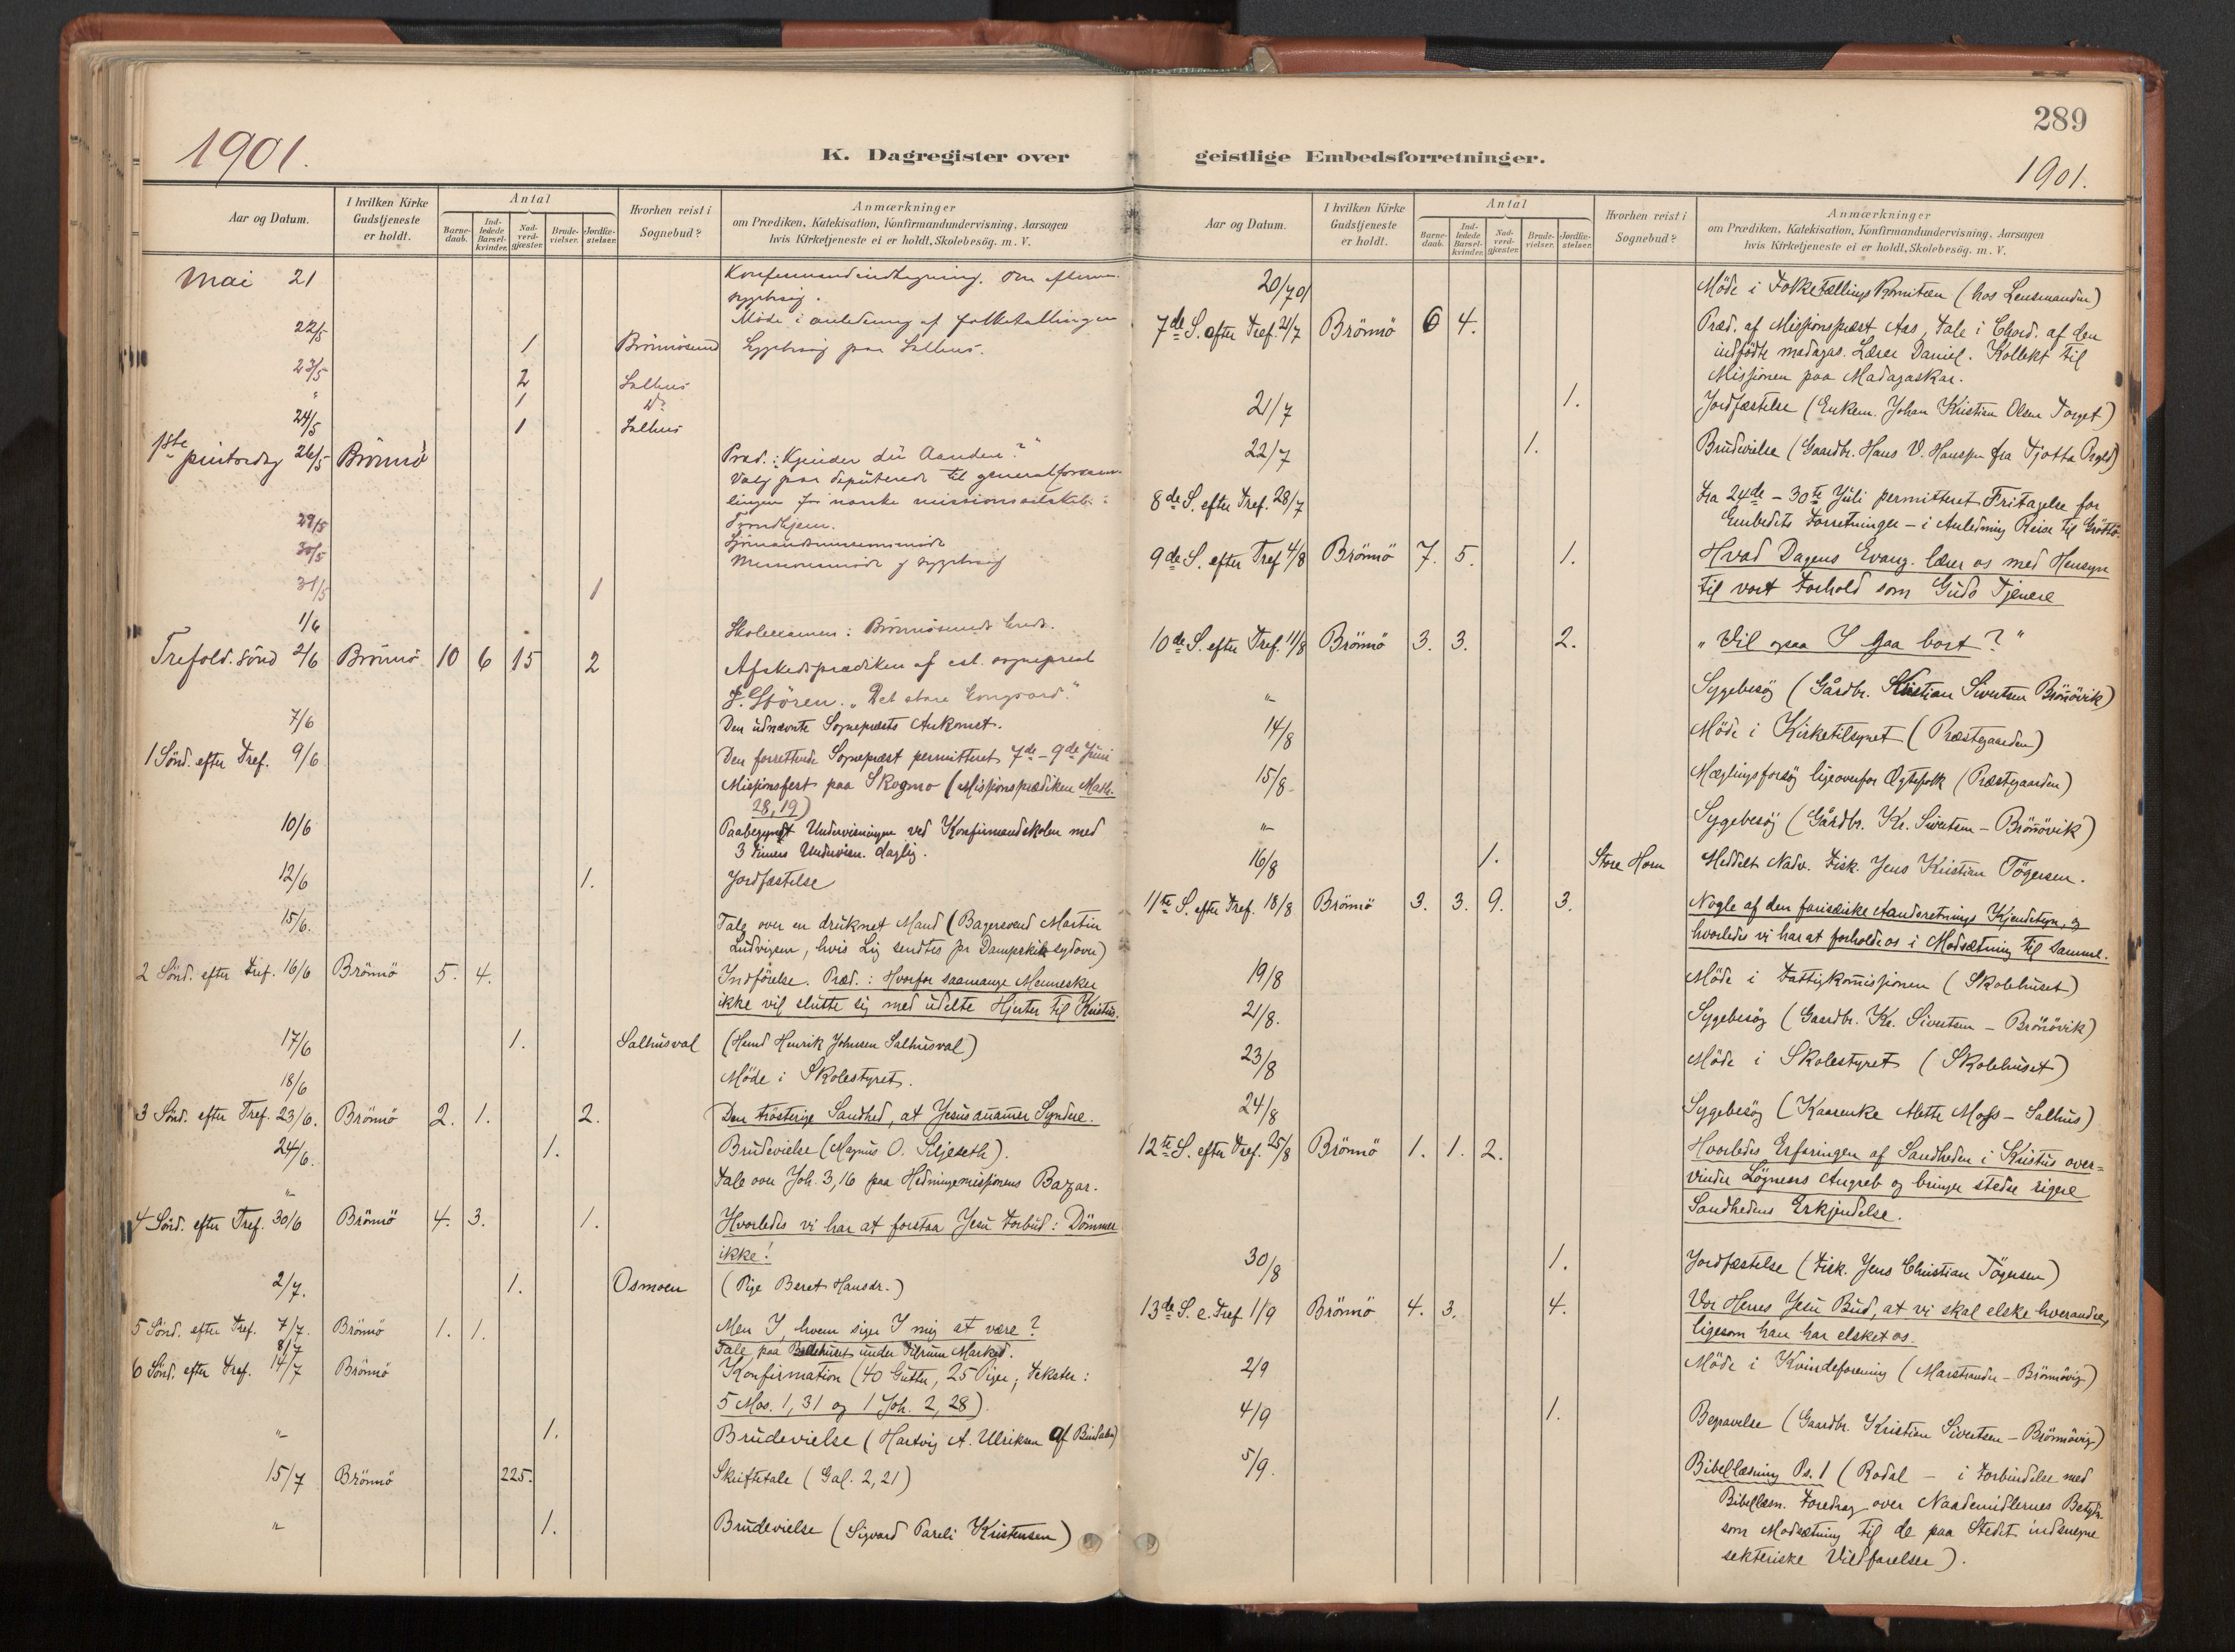 289
1901.
K. Dagregister over
geistlige Embedsforretninger.
1901.
Aar og Datum.
I hvilken Kirke Gudstjeneste er holdt.
Antal
Barne-daab.
Ind-ledede Barsel-kvinder.
Nad-verd-gjæster.
Brude-vielser.
Jordfæ-stelser.
Hvorhen reist i Sognebud?
Anmærkninger
om Prædiken, Katekisation, Konfirmandundervisning, Aarsagen
hvis Kirketjeneste ei er holdt, Skolebesög. m. V.
Mai 21 Konfirmandindtegning. Om efterm.
sygebesøg.
Møde i anledning af folketællingen
22/5 1 Brönnösund Sygebesøg paa Salhus.
23/5 2 Salhus
" 1 do
24/5 1 Salhus
1ste pintsedag 26/5 Brönnö Præd.: "Kjender du Aanden?"
Valg paa deputerede til generalforsam-
lingen for norske missionsselskab i
Trondhjem.
29/5 Sjömandsmissionsmöde
30/5 Missionsmöde & sygebesøg
31/5 1
1/6 Skoleexamen: Brönnösunds kreds.
Trefold. sönd 2/6 Brönnö 10 6 15 2 Afskedsprædiken af cst. sogneprest
"Det store Longoord."
7/6 Den udnævnte Sogneprests Ankomst.
1 Sönd. efter Tref. 9/6 Den forrettende Sognepræst permitteret 7de - 9de Juni
Missionsfest paa Skogmo (Missionsprædiken Math.
28,19)
10/6 Paabegyndt Undervisningen ved Konfirmandskolen med
3 Timers Undervisn. daglig.
12/6 1. Jordfæstelse
15/6. Tale over en druknet Mand (Bagersvend Martin
Ludvigsen, hvis Lig sendtes pr Dampskib sydover)
2 Sönd. efter Tref. 16/6 Brönnö 5. 4. Indförelse. Præd.: Hvorfor saamange Mennesker
ikke vil slutte sig med udelte Hjerter til Kristus.
17/6 1. Salhusval (Henrik Johnsen Salhusval)
18/6 Möde i Skolestyret.
3 Sönd. efter Tref. 23/6. Brönnö 2. 1. 2. Den trösterige Sandhed, at Jesus anamer Syndere.
24/6. 1. Brudevielse (Magnus O. Siljeseth).
"- Tale over Joh. 3,16 paa Hedningemissionens Bazar.
4 Sönd. efter Tref. 30/6 Brönnö 4. 3. 1. Hvorledes vi har at forstaa Jesu Forbud: Dömmer
ikke!
2/7. 1. Osmoen (Pige Beret Hansdr.)
5 Sönd. efter Tref. 7/7. Brönnö 1. 1. Men I, hvem siger I mig at være?
8/7 Tale paa Bedehuset under Tilrum Marked.
6 Sönd. efter Tref. 14/7 Brönnö Konfirmation (40 Gutter, 25 Piger, Tekster:
5 Mos. 1, 31 og 1 Joh. 2, 28).
"- 1. Brudevielse (Hartvig A. Ulriksen af Bindalen)
15/7 Brönnö 225. Skriftetale (Gal. 2, 21)
"- 1. Brudevielse (Sigvard Pareli Kristensen)
Aar og Datum.
I hvilken Kirke Gudstjeneste er holdt.
Antal
Barne-daab.
Ind-ledede Barsel-kvinder.
Nad-verd-gjæster.
Brude-vielser.
Jordfæ-stelser.
Hvorhen reist i Sognebud?
Anmærkninger
om Prædiken, Katekisation, Konfirmandundervisning, Aarsagen
hvis Kirketjeneste ei er holdt, Skolebesög. m. V.
20/7 01 Möde i FolketællingsKomiteen (hos Lensmanden)
7de S. efter Tref. 21/7 Brönnö 6 4. Præd. af Missionspræst Aas, Tale i Chord. af den
indfödte madagas. Lærer Daniel. Kollekt til
Missionen paa Madagaskar.
21/7 1. Jordfæstelse (Enkem. Johan Kristian Olsen Torget)
22/7 1. Brudevielse (Gaardbr. Hans V. Hanssen fra Tjotta Prgld)
8de S. efter Tref. 28/7 Fra 24de - 30te Juli permitteret Fritagelse for
Embedets Forretninger - i Anledning Reise til Gröttö.
9de S. efter Tref 4/8 Brönnö 7. 5. 1. Hvad Dagens Evang. lærer os med Hensyn
til vort Forhold som Guds Tjenere
10de S. efter Tref. 11/8 Brönnö 3. 3. 2. "Vil ogsaa I gaa bort?"
"- Sygebesög (Gårdbr. Kristian Sivertsen Brönövik)
14/8 Möde i Kirketilsynet (Præstegaarden)
15/8 Mæglingsforsög ligeoverfor Ægtefolk (Præstgaarden)
"- Sygebesög (Gårdbr. Kr. Sivertsen - Brönövik)
16/8 1. Store Horn Meddelt Nadv. Fisk. Jens Kristian Tögersen.
11te S. efter Tref. 18/8 Brönnö 3. 3. 9. 3. Nogle af den farisæiske Aandsretnings Kjendetegn, &
hvorledes vi har at forholde os i Modsætning til samme.
19/8 Möde i Fattigkomissionen (Skolehuset)
21/8. Sygebesög (Gaardbr. Kr. Sivertsen - Brönövik)
23/8 Möde i Skolestyret (Skolehuset)
24/8 Sygebesög (Kaarenke Mette Moss - Salhus)
12te S. efter Tref. 25/8 Brönnö 1. 1. 2. Hvorledes Erfaringen af Sandheden i Kristus over=
vinder Lögnens Angreb og bringer stedse rigere
Sandhedens Erkjendelse.
30/8 1. Jordfæstelse (Fisk. Jens Christian Tögersen)
13de S. e. Tref 1/9 Brönnö 4. 3. 4. Vor Herres Jesu Bud, at vi skal elske hverandre,
ligesom han har elsket os.
2/9 Möde i Kvindeforening (Marstrander - Brönnövig)
4/9 1. Begravelse (Gaardbr. Kristian Sivertsen - Brönnövig)
5/9. Bibellæsning Ps. 1 (Rodal - i Forbindelse med
Bibellæsn. Foredrag over Naademidlernes Betydn.
som Modsætning til de paa Stedet indsnegne
sekteriske Vildfarelser).